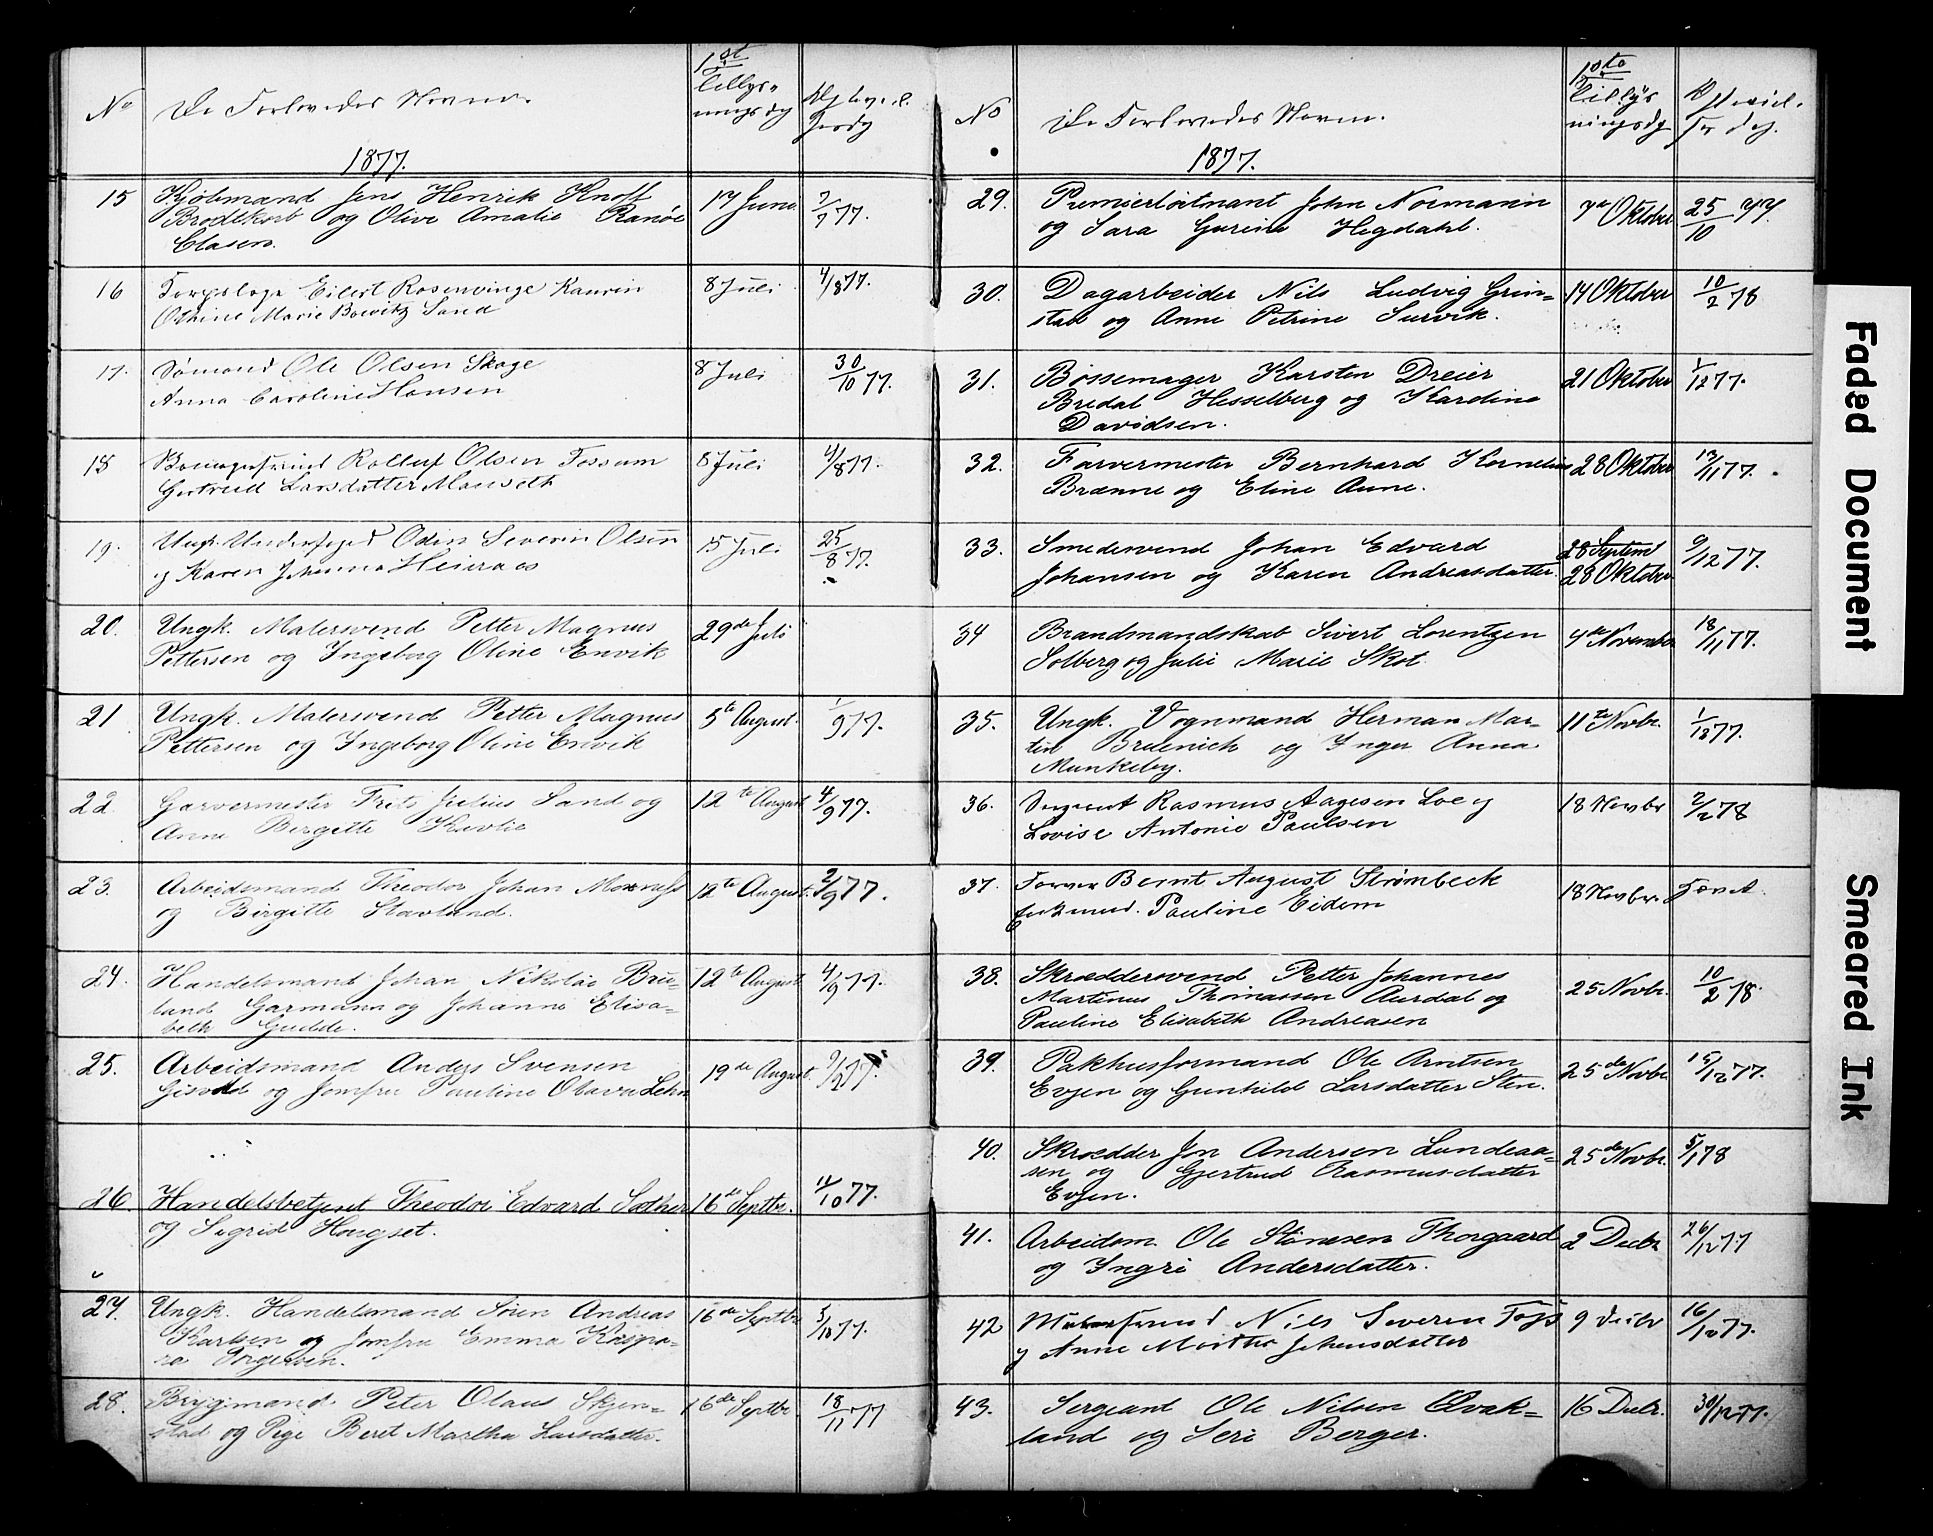 No De Forlovedes Navne. 1st Tillysningsdag
1877.
15 Kjøbmand Jens Henrik Knoff 17 Juni 2/7 77.
Brodtkorb og Olive Amalie Ranøe
Clasen.
16 Eilert Rosenvinge Kaurin 8 Juli 4/8 77.
Othine Marie Bowitz Sand
17. Sømand Ole Olsen Skage 8 Juli 30/10 77.
Anna Caroline Hansen
18 Rolluf Olsen Fossum 8 Juli 4/8 77.
Gertrud Larsdatter Mauseth
19. Ungk. Odin Severin Olsen 15 Juli 25/8 77.
og Karen Johanna
20. Ungk. Malersvend Petter Magnus 29de Juli
Pettersen og Ingeborg Oline Envik
21 Ungk. Malersvend Petter Magnus 5te August. 1/9 77.
Pettersen og Ingeborg Oline Envik
22. Garvermester Frits Julius Sand og 12te August 4/9 77.
Anne Bergitte
23. Arbeidsmand Theodor Johan 12te August. 2/9 77.
og Birgitte Stavland.
24. Handelsmand Johan Nikolai Bru- 12te August 4/9 77.
lund Garmann og Johanne Elisa-
beth Gudde.
25. Arbeidsmand Anders Svensen 19de August 9/12 77.
og Jomfru Pauline Olava Lehn
26. Handelsbetjent Theodor Edvard Sæther 16de Septbr. 10 77.
og Sigrid Haugset.
27. Ungk. Handelsmand Søren Andreas 16de Septbr 5/10 77.
Karlsen og Jomfru Emma
Torgersen.
28. Brygmand Peter Olaus Skjen- 16de Septbr. 18/11 77
stad og Pige Beret Martha Larsdatter.
No De Forlovedes Navne.
1877.
29. Premierløitnant John Normann 7de Oktober 25/10 77.
og Sara Gurine Hegdahl.
30. Dagarbeider Nils Ludvig Grin- 14 Oktober 10/2 78
stad og Anne Petrine Survik.
31. Bøssemager Karsten Dreier 21 Oktober 1/12 77.
Bredal Hesselberg og Kardine
Davidsen.
32. Farvermester Bernhard Kornelius 28 Oktober 13/11 77.
Brænne og Eline Aune.
33. Smedesvend Johan Edvard 28 Septem 9/12 77.
Johansen og Karen Andreasdatter. 28 Oktober
34 Brandmandskab Sivert Lorentzen 4de November 18/11 77.
Solberg og Julie Marie Skot.
35. Ungk. Vognmand Herman Mar- 11te Novbr. 1/12 77.
tin Bruenich og Inger Anna
Munkeby.
36. Sergeant Rasmus Aagesen Loe og 18 Novbr 2/2 78
Lovise Antonie Paulsen
37. Farver Bernt August Strømbeck 18 Novbr.
Pauline Eidem
38. Skræddersvend Petter Johannes 25 Novbr. 10/2 78.
Martinus Thomassen Aurdal og
Pauline Elisabeth Andreasen
39. Pakhusformand Ole Arntsen 25de Novbr 15/12 77.
Evjen og Gunhild Larsdatter Sten.
40. Skrædder Jon Andersen Lundeaa- 25de Novbr. 5/1 78
sen og Gjertrud Rasmusdatter
Evjen.
41. Arbeidsm. Ole Stønesen Thorgaard 2 Decbr 26/12 77
og Ingri Andersdatter.
42 Nils Severin 9 Decbr 16/12 77.
og Anne Johnsdatter
43. Sergeant Ole Nilsen Qvak- 16 Decbr. 30/12 77.
land og Seri Berger.
Faded Document
Smeared Ink